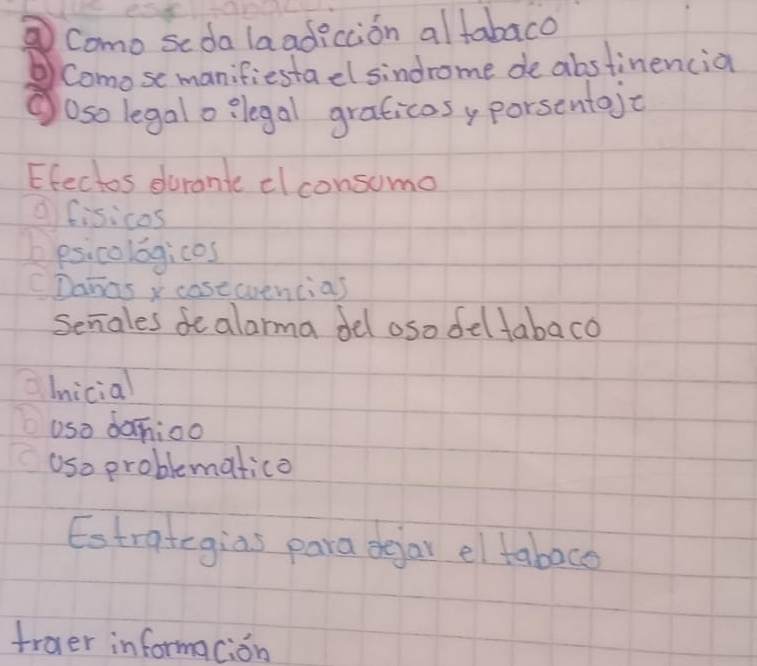 a) Como se da la adicción al tabaco
b) Como se manifiesta el sindrome de abstinencia
c) Uso legal o ilegal graficas y porsentaje
Efectos durante el consumo
a fisicos
b psicológicos
c Daños y cosecuencias
Señales de alarma del uso del tabaco
a Inicial
b uso dañioo
c uso problematico
Estrategias para dejar el tabaco
traer información